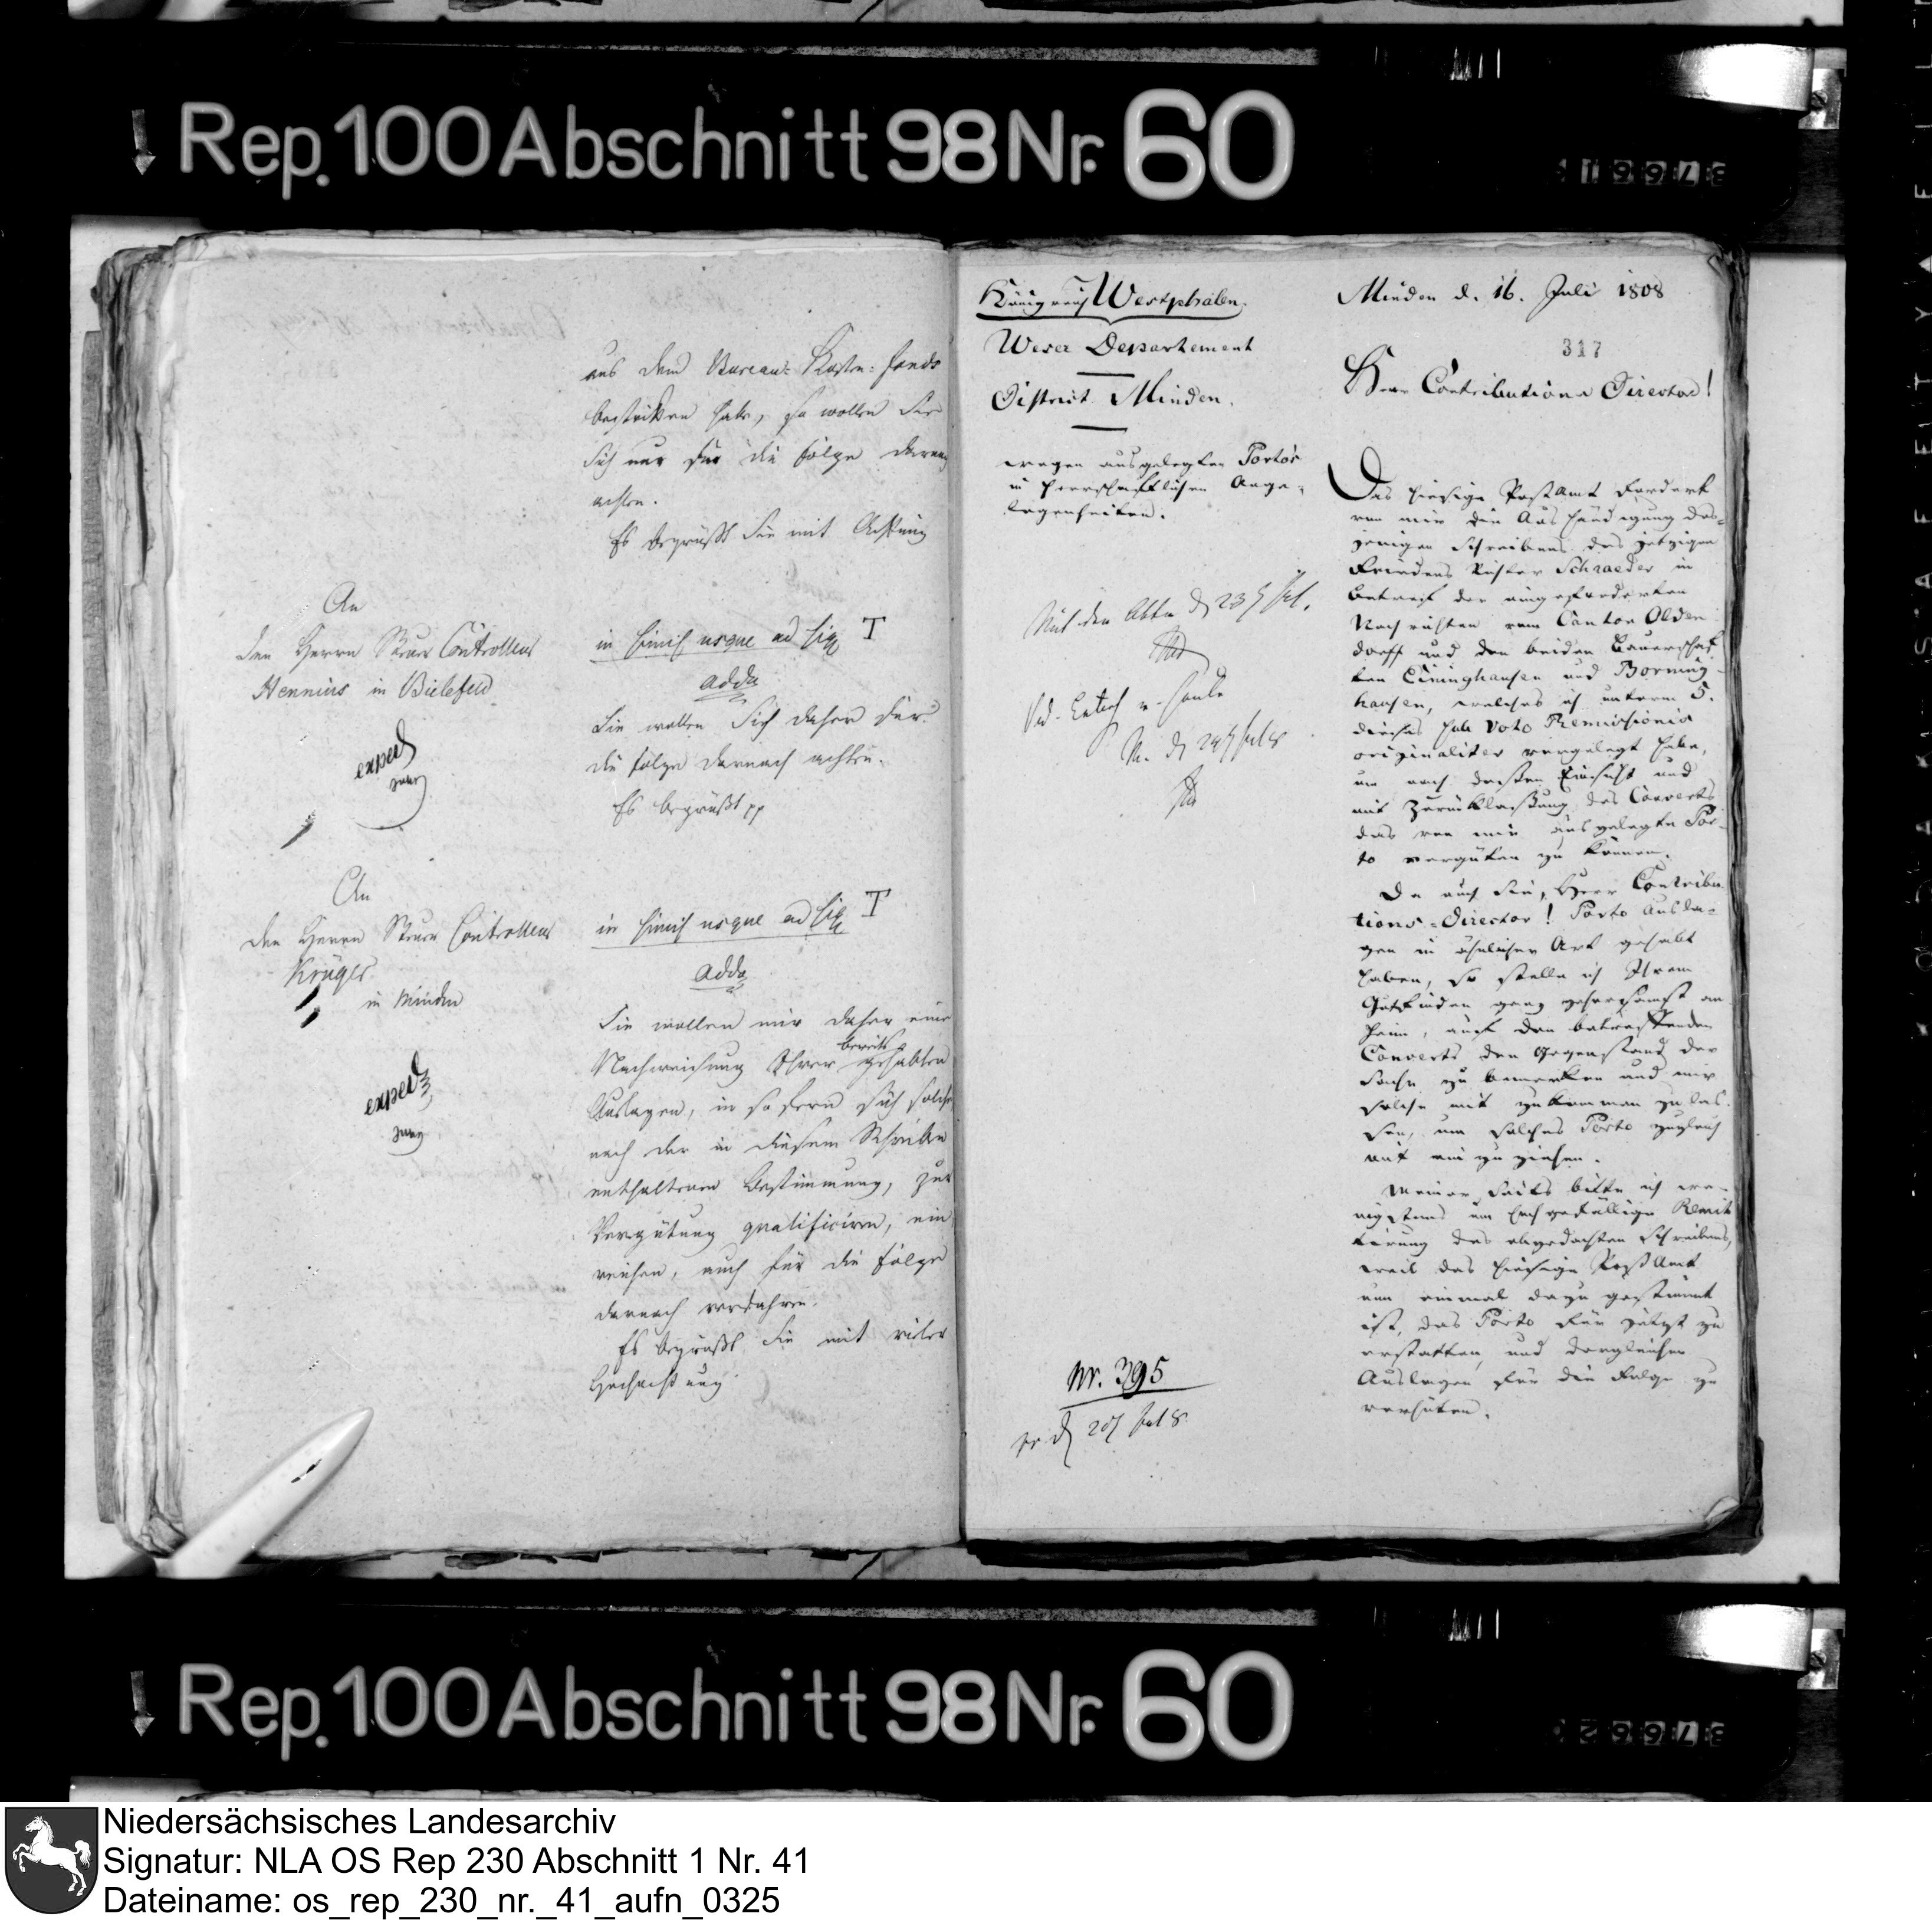 Rep. 100 Abschnitt 98 Nr. 60
aus dem Bureau-Kosten-fonds
bestritten habe, so wollen Sie
Sich nur für die Folge darnach
achten.
Es begrüßt Sie mit Achtung
An
den Herrn Steuer Controlleur
Hennius in Bielefeld
exped
in simili usque ad sig T
adde
Sie wollen Sich daher für
die Folge darnach achten.
Es begrüßt pp
An
den Herrn Steuer Controlleur
Krüger
in Minden
exped
in simili usque ad sig T
adde
Sie wollen mir daher eine
Nachweisung Ihrer bereits gehabten
Auslagen, in so fern sich solche
nach der in diesem Schreiben
enthaltenen Bestimmung, zur
Vergütung qualificiren, ein
reichen, auch für die Folge
darnach verfahren.
Es begrüßt Sie mit vieler
Hochachtung
Königreich Westphalen.
Weser Departement
District Minden.
wegen ausgelegten Porto's
in herrschaftlichen Ange-
legenheiten.
Mit den Akten d 23
Nr. 395
20 Jul 8
Minden d. 16. Juli 1808
317
Herr Contributions Director!
Das hiesige Postamt fordert
von mir die Aushändigung des-
jenigen Schreibens des jetzigen
Friedens Richter Schraeder in
Betreff der eingeforderten
Nachrichten vom Canton Olden
dorff und den beiden Bauerschaf
ten Eininghausen und Borning
hausen, welches ich unterm 5.
dieses sub voto Remissionis
originaliter vorgelegt habe,
um nach dessen Einsicht und
mit Zurücklassung des Couverts
das von mir ausgelegte Por-
to vergüten zu können.
Da auch Sie, Herr Contribu
tions-Director! Porto Ausla-
gen in ähnlicher Art gehabt
haben, so stelle ich Ihrem
Gutfinden ganz gehorsamst an
heim, auf den betreffenden
Couverts den Gegenstand der
Sache zu bemerken und mir
solche mit zukommen zu las-
sen, um solches Porto zugleich
mit einzuziehen.
Meiner Seits bitte ich we-
nigstens um hochgefällige Remit
tirung des obgedachten Schreibens,
weil das hiesige Post Amt
nun einmal dazu gestimmt
ist, das Porto für jetzt zu
erstatten, und dergleichen
Auslagen für die Folge zu
verhüten.
Rep. 100 Abschnitt 98 Nr. 60
Niedersächsisches Landesarchiv
Signatur: NLA OS Rep 230 Abschnitt 1 Nr. 41
Dateiname: os_rep_230_nr._41_aufn_0325